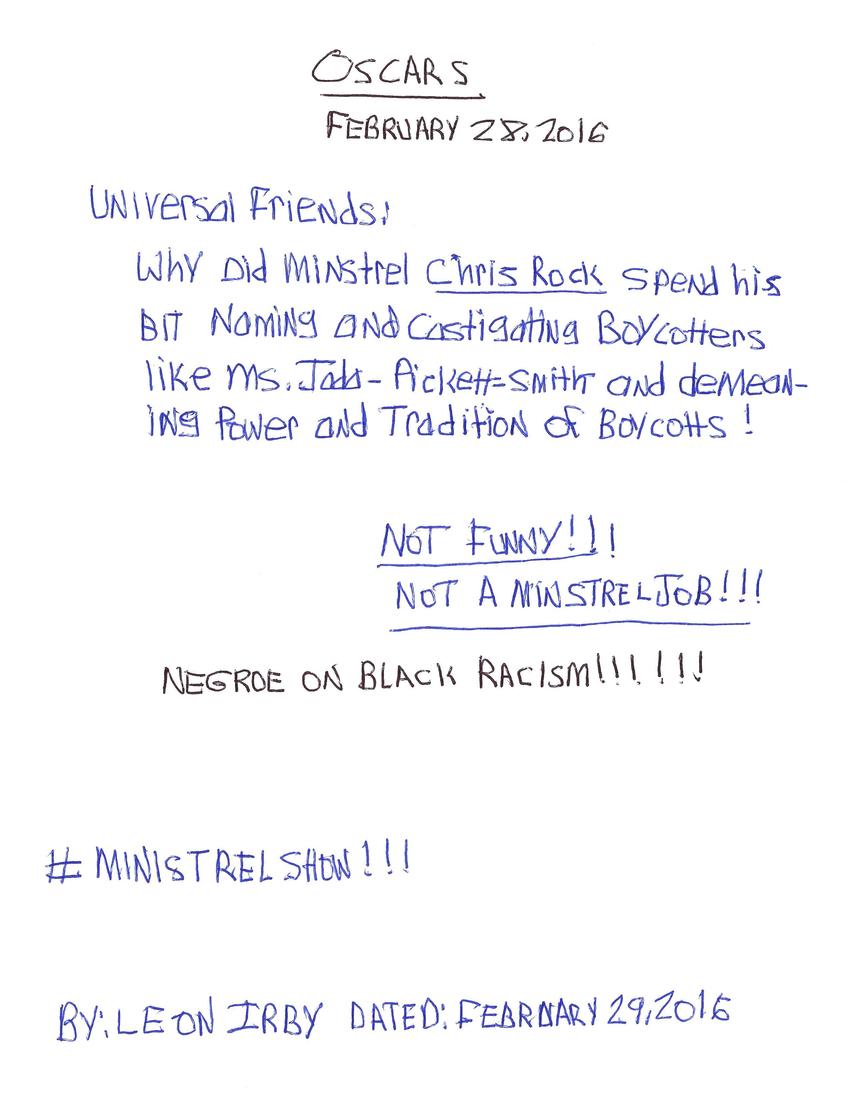 OSCARS
FEBRUARY 28, 2016
Universal Friends:
Why Did Minstrel Chris Rock spend his
BIT Naming AND Castigating Boycotters
like Ms. Jada-Pickett-Smith and demean-
ing Power and Tradition of Boycotts!
NOT FUNNY!!!
NOT A MINSTREL JOB!!!
NEGROE ON BLACK RACISM!!!!!!
# MINISTREL SHOW!!!
BY: LEON IRBY DATED: FEBRUARY 29, 2016